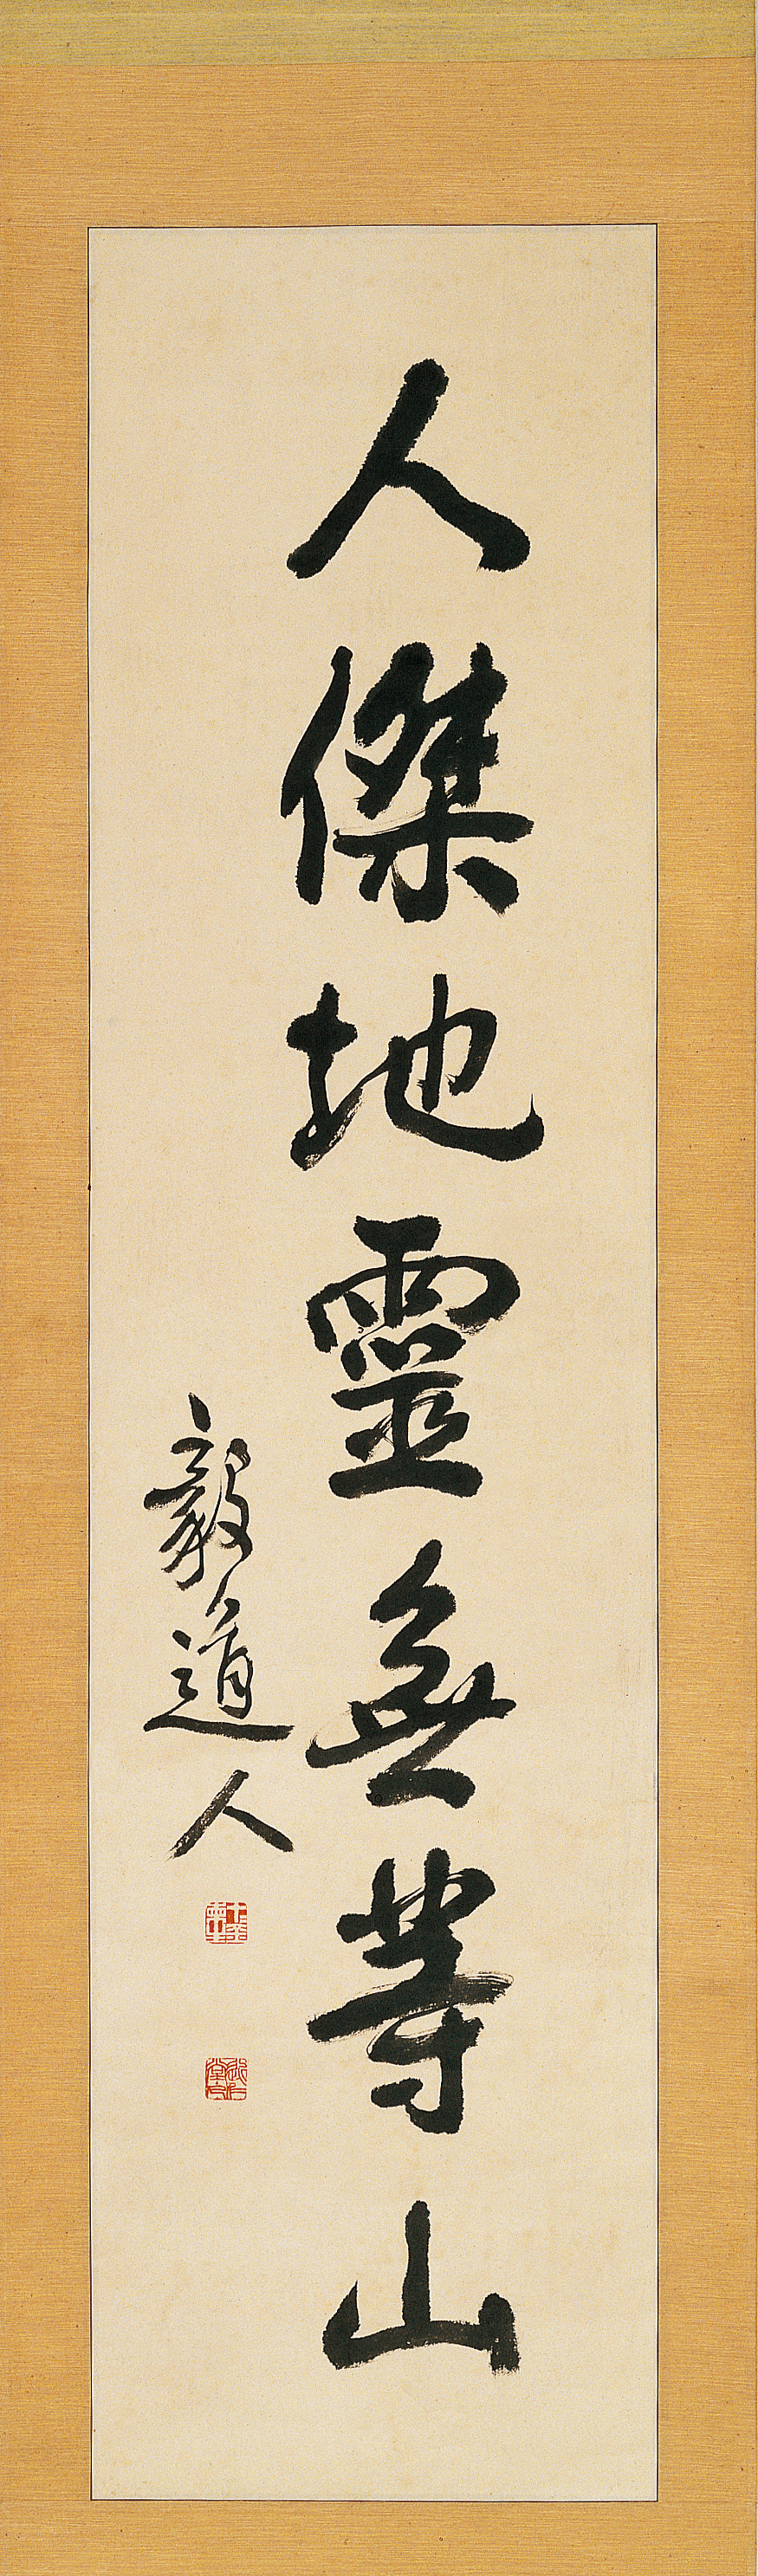 人傑地靈無等山
毅道人